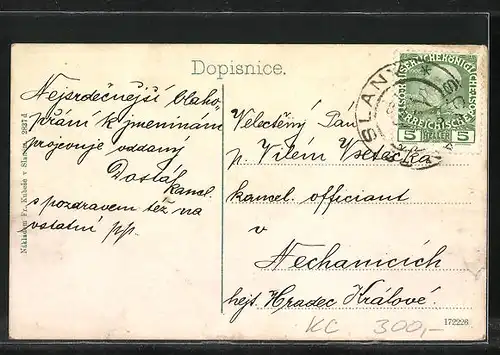 Dopisnice.
Nejsrdečnější blaho-
přání k jmeninám
projevuje oddaný
Dostál
kancl.
s pozdravem též na
ostatní pp.
Velectěný Pan
p. Vilém Vsetečka
kancel. officiant
v
Nechanicích
hejt. Hradec Králové.
KC 300,-
172226
Nákladem Fr. Kubeše v Slaném. 2837 d
SLANÝ
5 HELLER 5